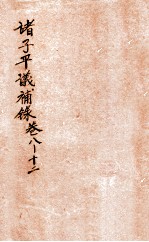 诸子平議補錄卷八—十二